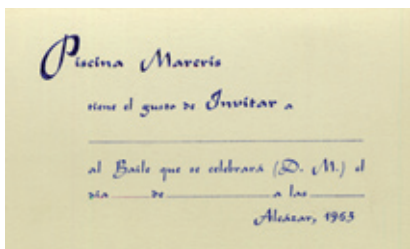 Piscina Mareris
tiene el gusto de Invitar a
al Baile que se celebrará (D. M.) el
día de a las
Alcázar, 1963